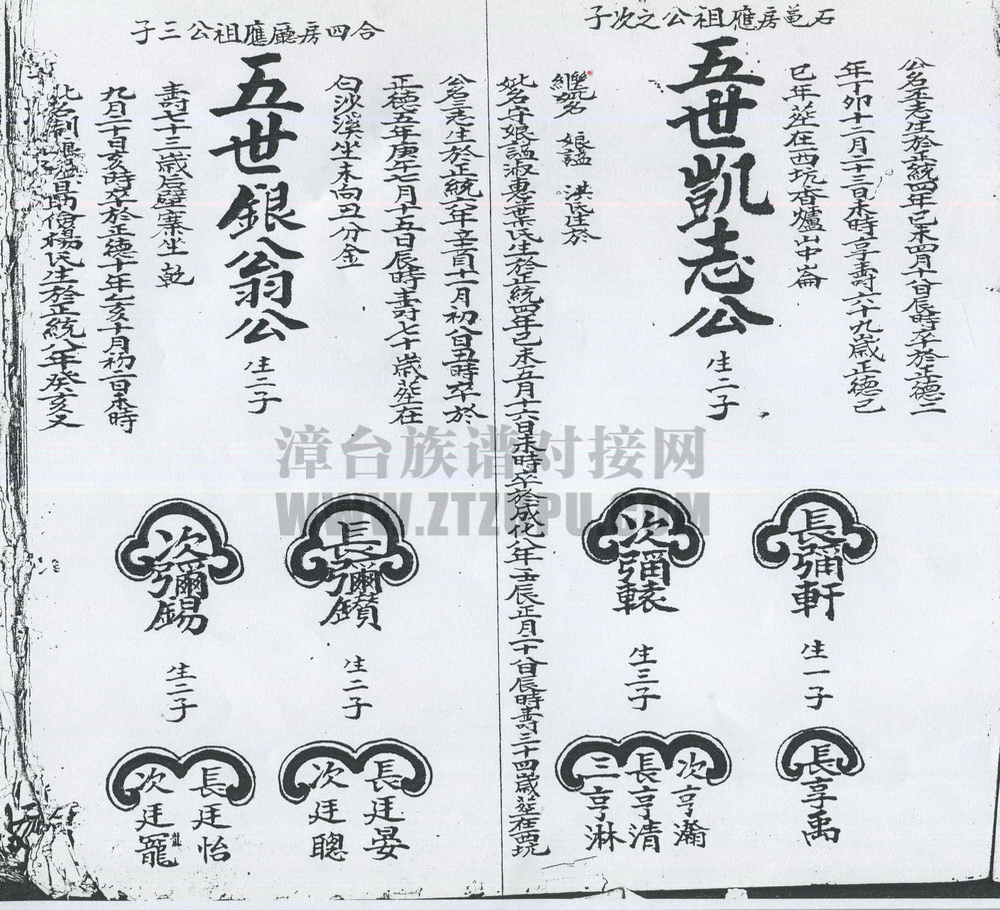 石亀房應祖公之次子
五世凱志公
生二子
公名玉志生於正統四年己未四月十日辰時卒於正德二
年丁卯十二月二十三日未時享壽六十九歲正德己
巳年葬在西坑香爐山中崙
繼妣名 娘謚 洪氏生於
妣名守娘謚淑惠葉氏生於正統四年己未五月十六日未時卒於成化八年壬辰正月二十八日辰時壽三十四歲葬在西坑
長彌軒
生一子
長亨禹
次彌轅
生三子
次亨瀚
長亨清
三亨淋
合四房廳應祖公三子
五世銀翁公
生二子
公名三志生於正統六年辛酉十一月初八日丑時卒於
正德五年庚午七月十五日辰時壽七十歲葬在
白沙溪坐未向丑分金
壽七十三歲后壁寨坐乾
九月二十日亥時卒於正德十年乙亥十月初一日未時
勤儉楊氏生於正統八年癸亥又
長彌鑽
生二子
長廷晏
次廷聰
次彌錫
生二子
長廷怡
次廷寵
龍
漳台族谱对接网
WWW.ZTZUPU.COM